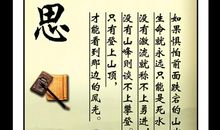 思
如果惧怕前面跌宕的山
生命就永远只能是死水
没有激流就称不上勇进
没有山峰则谈不上攀登
只有登上山顶，
才能看到那边的风光。